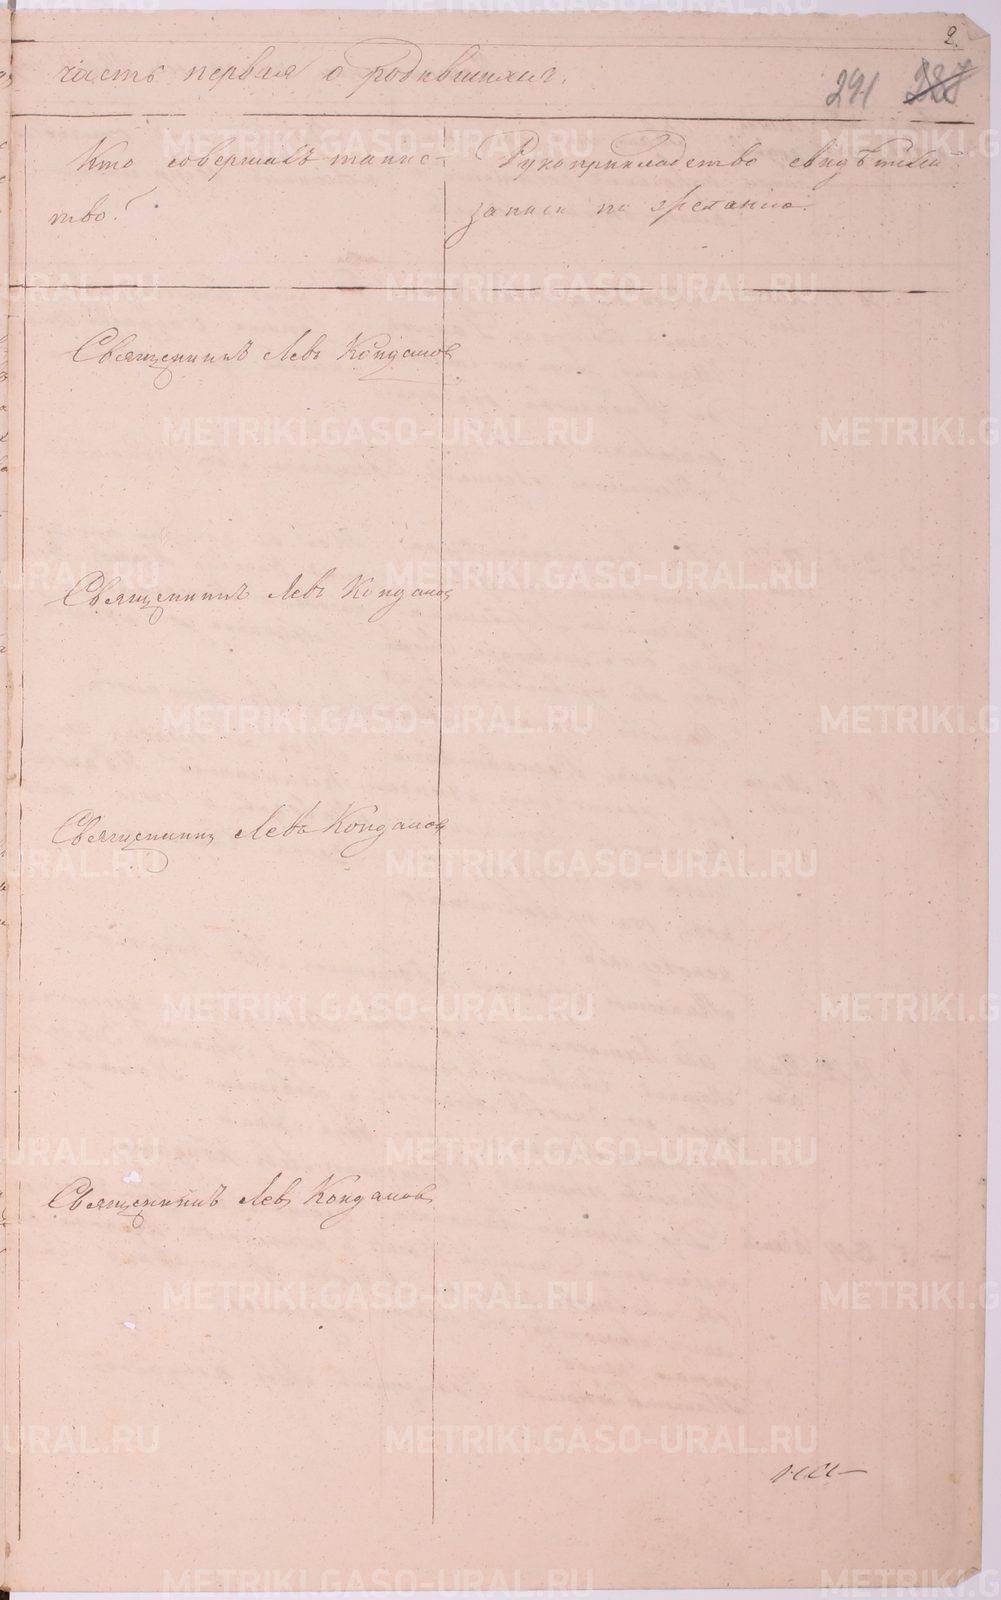 2.
часть первая о родившихся.
291 227
Кто совершалъ таинс-
тво?
Рукоприкладство свидѣтелей
записи по желанію.
Священникъ Левъ Кондаков
Священникъ Левъ Кондаков
Священникъ Левъ Кондаков
Священникъ Левъ Кондаков
METRIKI.GASO-URAL.RU